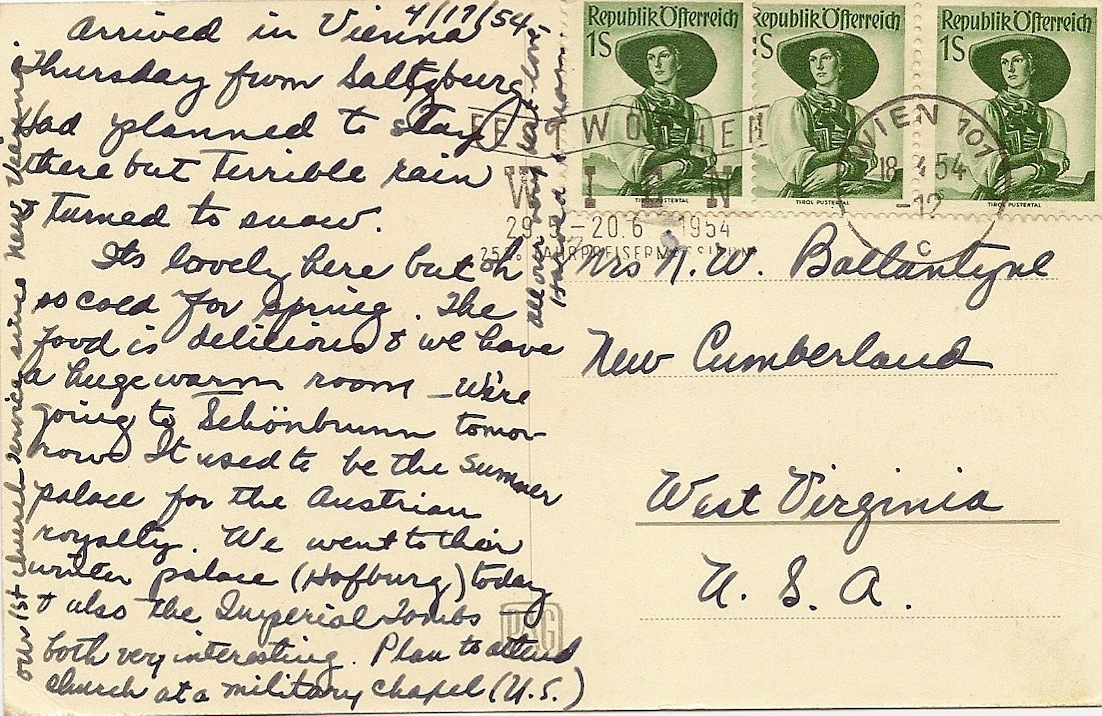 4/17/54
Arrived in Vienna
Thursday from Saltzburg.
Had planned to stay
there but terrible rain
& turned to snow.
Its lovely here but oh
so cold for spring. The
food is delicious & we have
a huge warm room — We're
going to Schönbrunn tomor-
row. It used to be the summer
palace for the Austrian
royalty. We went to their
winter palace (Hofburg) today
& also the Imperial Tombs —
both very interesting. Plan to attend
church at a military chapel (U.S.)
our 1st church service since New
all our very love
&
Republik Österreich
1S
TIROL PUSTERTAL
Republik Österreich
1S
TIROL PUSTERTAL
Republik Österreich
1S
TIROL PUSTERTAL
WOCHEN
WIEN
29.5.-20.6.1954
25% FAHRPREISERMÄSSIGUNG
WIEN 101
18.4.54
-12
C
Mrs N. W. Ballantyne
New Cumberland
West Virginia
U. S. A.
PAG